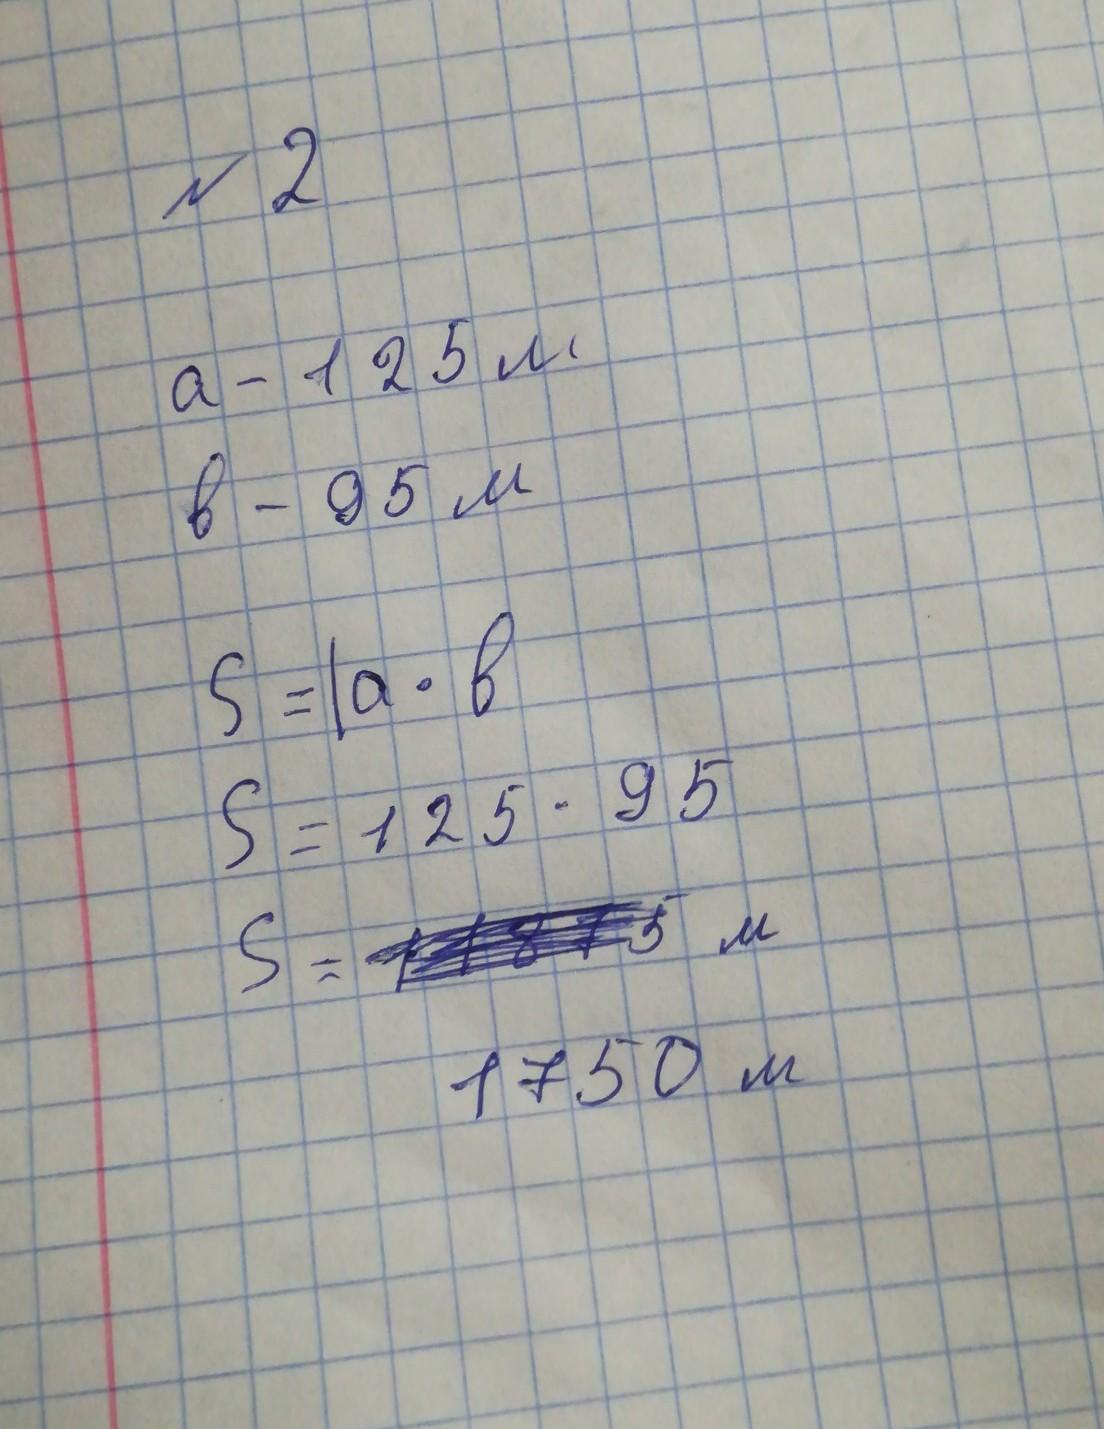 № 2
a - 125 м.
в - 95 м
S = a · в
S = 125 · 95
S = 11875 м
1750 м